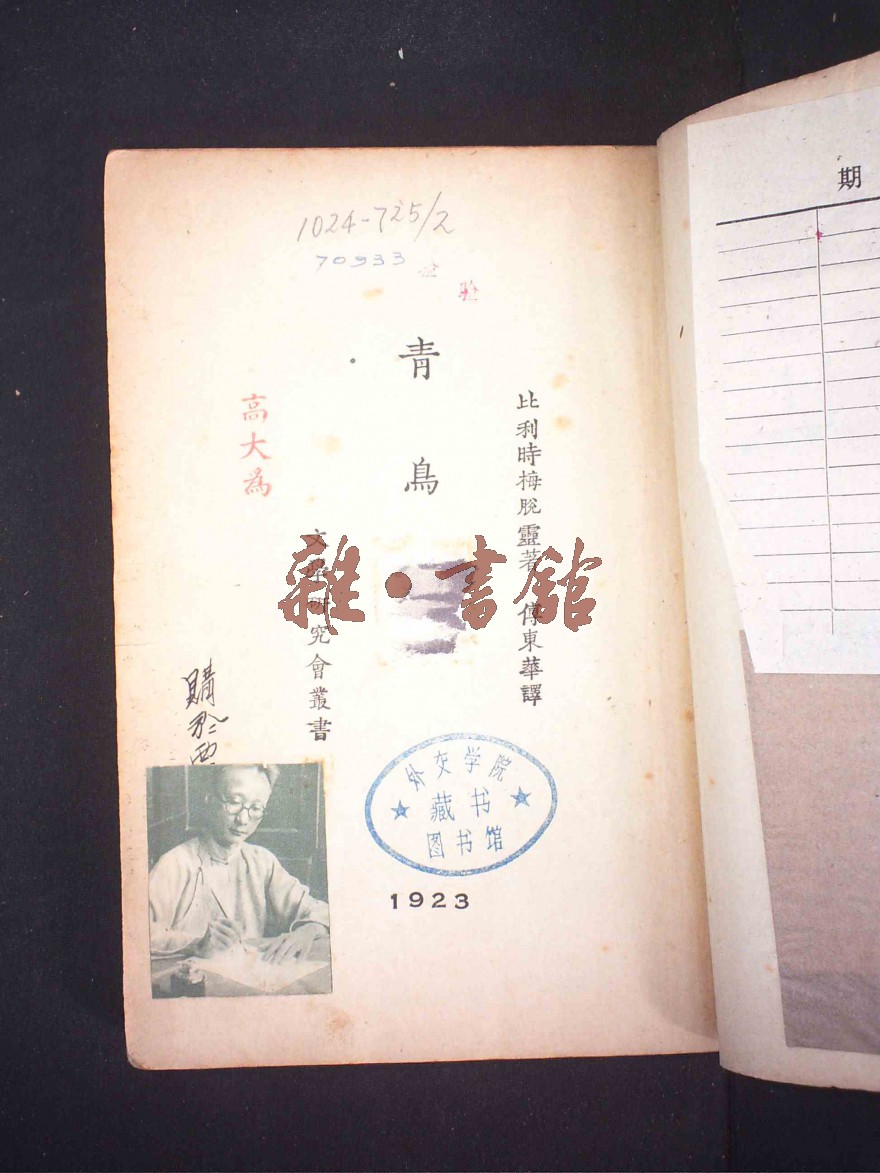 1024-725/2
70933
檢
驗
青鳥
比利時梅脫靈著 傅東華譯
文學研究會叢書
高大爲
購於西
雜·書館
外交学院
藏书
图书馆
1923
期